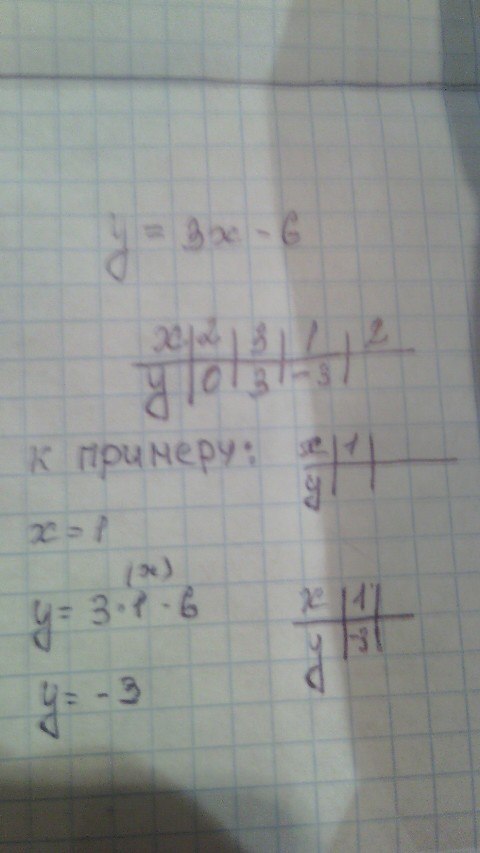 y = 3x - 6
x | 2 | 3 | 1 | 2
y | 0 | 3 | -3 |
к примеру:
x | 1 |
y | |
x = 1
(x)
y = 3 · 1 - 6
y = -3
x | 1 |
y | -3 |